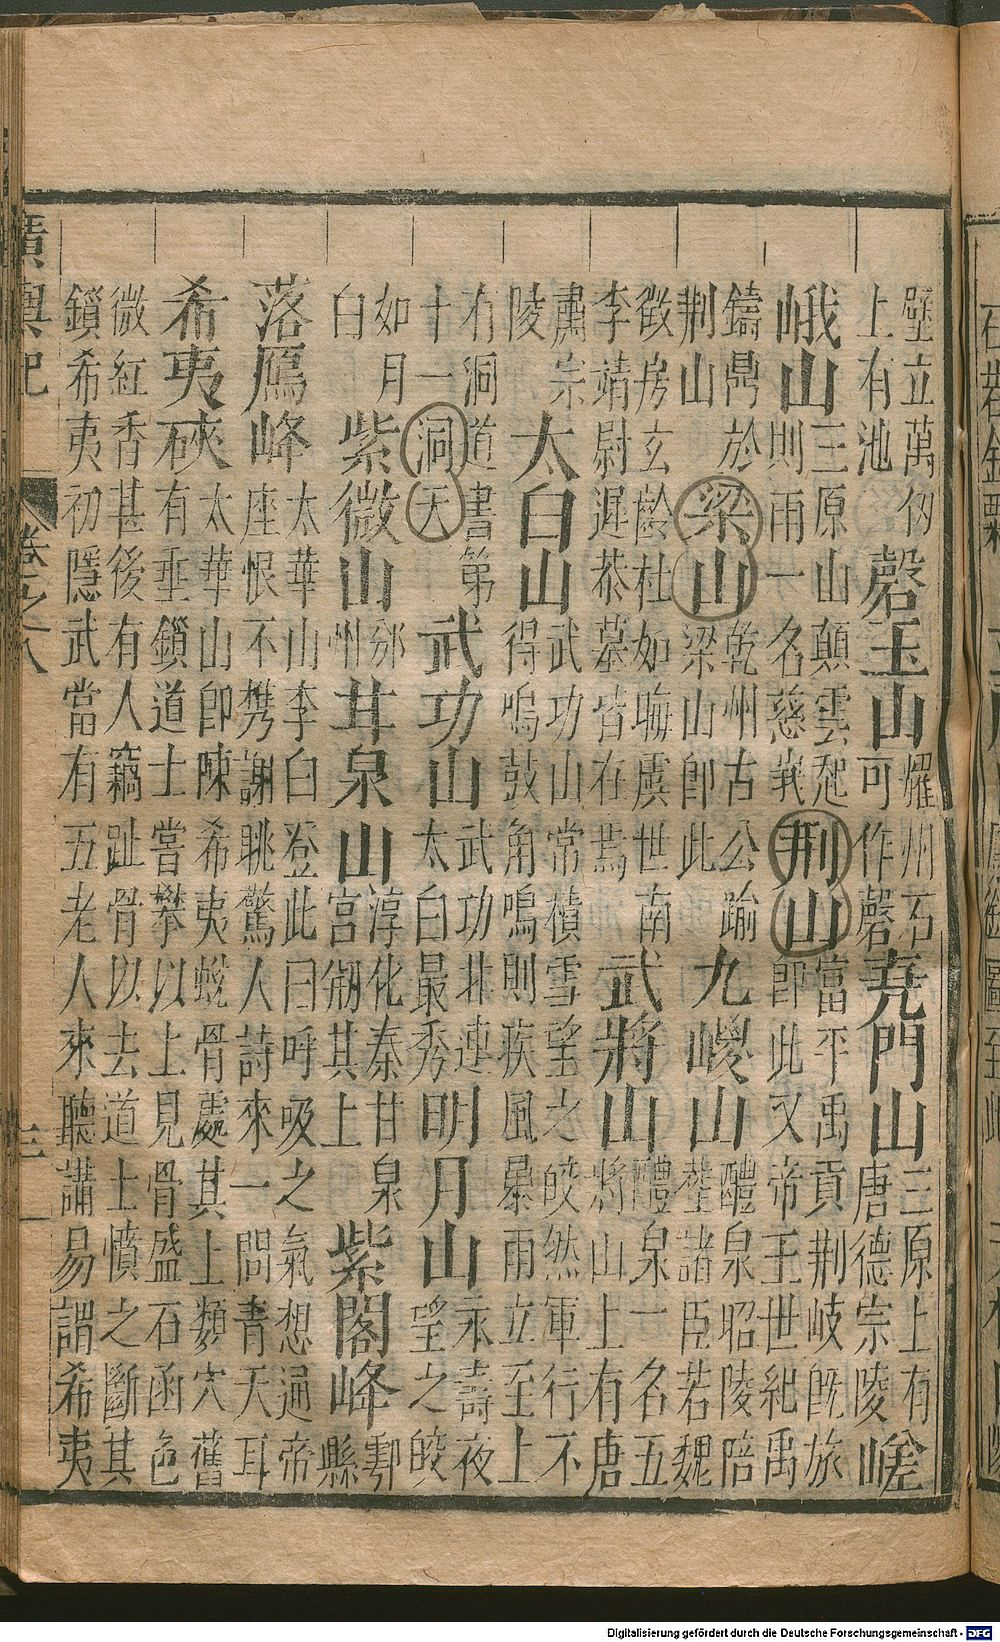 壁立萬仞上有池磬玉山耀州石可作磬堯門山三原上有唐德宗陵嵯
峨山三原山顛雲起則雨一名慈峩荆山當平禹貢荆岐旣旅即此又帝王世紀禹
鑄鼎於荆山梁山乾州古公踰梁山即此九嵕山醴泉昭陵陪塟諸臣若魏
徵房玄齡杜如晦虞世南李靖尉遲恭墓皆在焉武將山醴泉一名五將山上有唐
肅宗陵太白山武功山常積雪望之皎然軍行不得鳴鼓角鳴則疾風暴雨立至上
有洞道書第十一洞天武功山武功北連太白最秀明月山永壽夜望之皎
如月白紫微山邠州甘泉山淳化秦甘泉宮剏其上紫閣峰鄠縣
落鴈峰太華山李白登此曰呼吸之氣想通帝座恨不携謝眺驚人詩來一問青天耳
希夷硤太華山即陳希夷蛻骨處其上類穴舊有垂鎖道士嘗攀以上見骨盛石函色
微紅香甚後有人竊趾骨以去道士憤之斷其鎖希夷初隱武當有五老人來聽講易謂希夷
廣輿記
三
Digitalisierung gefördert durch die Deutsche Forschungsgemeinschaft - DFG